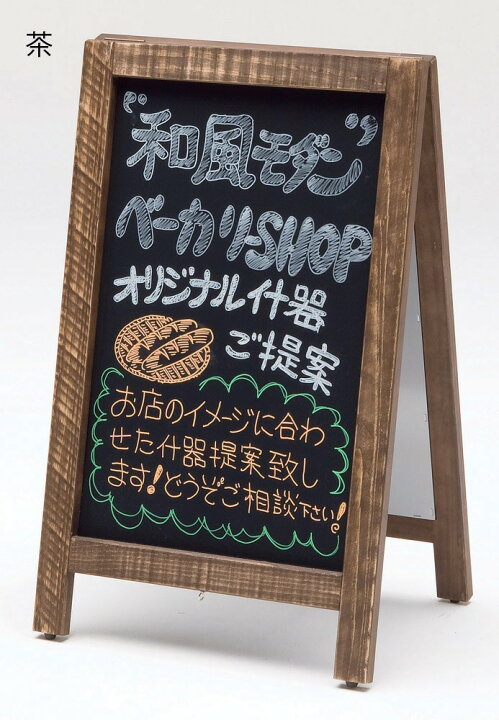 茶
“和風モダン”
ベーカリーSHOP
オリジナル什器
ご提案
お店のイメージに合わ
せた什器提案致し
ます!どうぞご相談下さい!